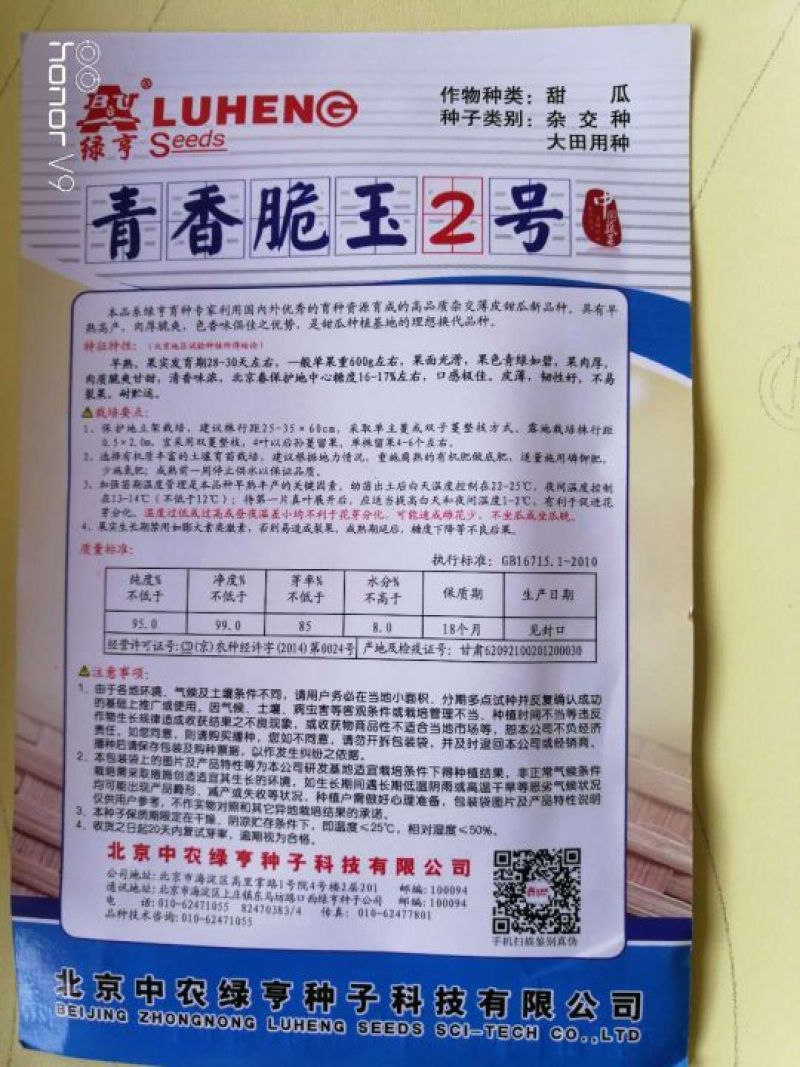 honor V9
B&U
®
LUHENG
绿亨 Seeds
作物种类：甜 瓜
种子类别：杂 交 种
大田用种
青香脆玉2号
本品系绿亨育种专家利用国内外优秀的育种资源育成的高品质杂交薄皮甜瓜新品种。具有早
熟高产、肉厚脆爽，色香味俱佳之优势，是甜瓜种植基地的理想换代品种。
特征特性：（北京地区试验种植所得结论）
早熟，果实发育期28-30天左右，一般单果重600g左右，果面光滑，果色青绿如碧，果肉厚，
肉质脆爽甘甜，清香味浓，北京春保护地中心糖度16-17%左右，口感极佳。皮薄，韧性好，不易
裂果，耐贮运。
栽培要点：
1、保护地立架栽培，建议株行距25-35×60cm，采取单主蔓或双子蔓整枝方式。露地栽培株行距
0.5×2.0m，宜采用双蔓整枝，4叶以后孙蔓留果，单株留果4-6个左右。
2、选择有机质丰富的土壤育苗栽培，建议根据地力情况，重施腐熟的有机肥做底肥，适量施用磷钾肥，
少施氮肥；成熟前一周停止供水以保证品质。
3、加强苗期温度管理是本品种早熟丰产的关键因素。幼苗出土后白天温度控制在22-25℃，夜间温度控制
在13-14℃（不低于12℃）；待第一片真叶展开后，应适当提高白天和夜间温度1-2℃，有利于促进花
芽分化。温度过低或过高或昼夜温差小均不利于花芽分化，可能造成雌花少，不坐瓜或坐瓜晚。
4、果实生长期禁用如膨大素类激素，否则易造成裂果，成熟期延后，糖度下降等不良后果。
质量标准：
执行标准：GB16715.1-2010
纯度% 净度% 芽率% 水分% 保质期 生产日期
不低于 不低于 不低于 不高于
95.0 99.0 85 8.0 18个月 见封口
经营许可证号：CD(京)农种经许字(2014)第0024号 产地及检疫证号：甘肃6209210020120030
注意事项：
1、由于各地环境、气候及土壤条件不同，请用户务必在当地小面积、分期多点试种并反复确认成功
的基础上推广或使用。因气候、土壤、病虫害等客观条件或栽培管理不当、种植时间不当等违反
作物生长规律造成收获结果之不良现象，或收获物商品性不适合当地市场等，恕本公司不负经济
责任。如您同意，则请购买播种，您如不同意，请勿开拆包装袋，并及时退回本公司或经销商。
播种后请保存包装及购种票据，以作发生纠纷之依据。
2、本包装袋上的图片及产品特性等为本公司研发基地适宜栽培条件下得种植结果，非正常气候条件
栽培需采取措施创造适宜其生长的环境，如生长期间遇长期低温阴雨或高温干旱等恶劣气候状况
均可能出现产品畸形、减产或失收等状况，种植户需做好心理准备，包装袋图片及产品特性说明
仅供用户参考，不作实物对照和其它异地栽培结果的承诺。
3、本种子保质期限定在干燥、阴凉贮存条件下，即温度≤25℃，相对湿度≤50%。
4、收货之日起20天内复试芽率，逾期视为合格。
北京中农绿亨种子科技有限公司
公司地址：北京市海淀区高里掌路1号院4号楼2层201 邮编：100094
通讯地址：北京市海淀区上庄镇东马坊路口西绿亨种子公司 邮编：100094
电 话：010-62471055 82470383/4 传真：010-62477801
品种技术咨询：010-62471055
手机扫描鉴别真伪
北京中农绿亨种子科技有限公司
BEIJING ZHONGNONG LUHENG SEEDS SCI-TECH CO.,LTD